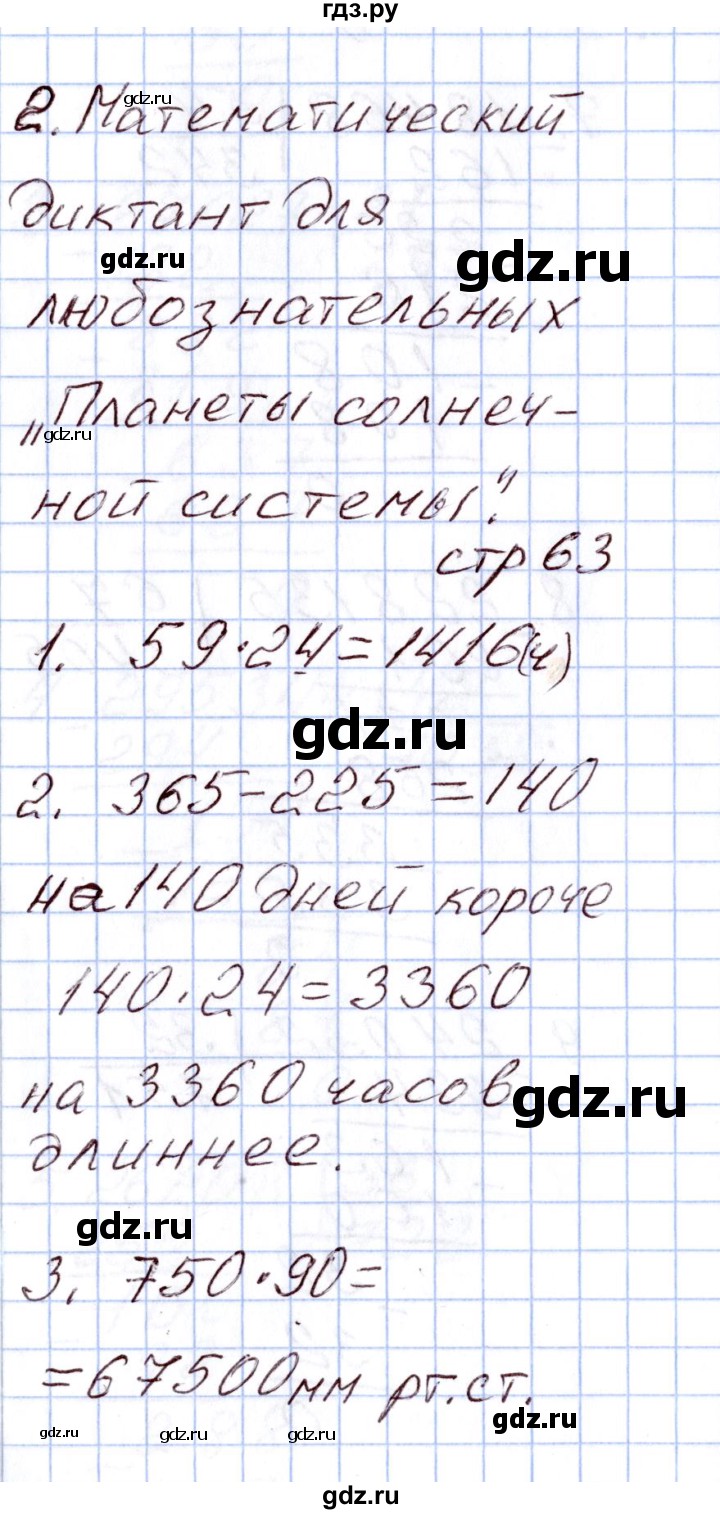 гдз.ру
2. Математический
gdz.ru
диктант для
gdz.ru
gdz.ru
любознательных
„Планеты солнеч-
gdz.ru
ной системы".
стр 63
1. 59·24=1416(ч)
gdz.ru
2. 365-225=140
на 140 дней короче
140·24=3360
на 3360 часов
gdz.ru
длиннее.
gdz.ru
3. 750·90=
=67500мм рт.ст.
gdz.ru
gdz.ru
gdz.ru
gdz.ru
gdz.ru